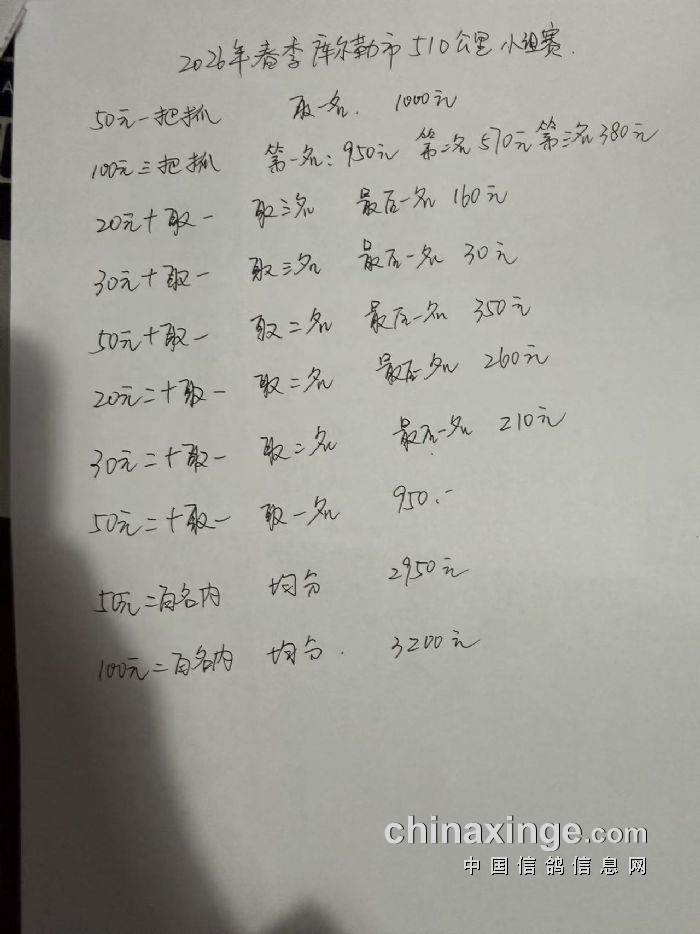 2026年春季库尔勒市510公里小组赛.
50元一把抓 取一名. 1000元
100元三把抓 第一名:950元 第二名570元 第三名380元
20元十取一 取三名 最后一名160元
30元十取一 取三名 最后一名 30元
50元十取一 取二名 最后一名 350元
20元二十取一 取二名 最后名 260元
30元二十取一 取二名 最后一名 210元
50元二十取一 取一名 950.-
50元二百名内 均分 2950元
100元二百名内 均分. 3200元
chinaxinge.com
中国信鸽信息网